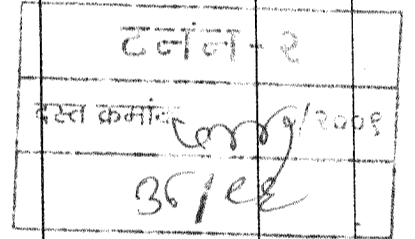 टनंन - २
दस्त क्रमांक /२००९
३८/९६